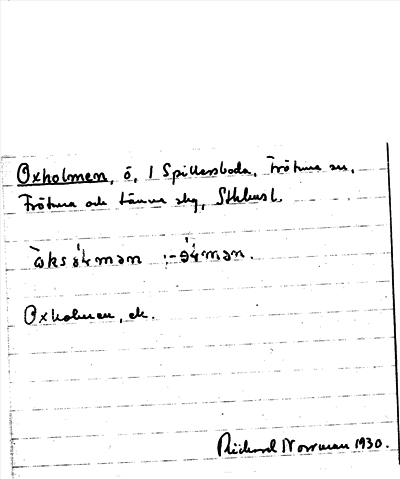 Oxholmen, ö, 1 Spillersboda, Frötuna sn,
Frötuna och Länna skg, Sthlms l.
Oxholmen, ek.
Richard Norrman 1930.